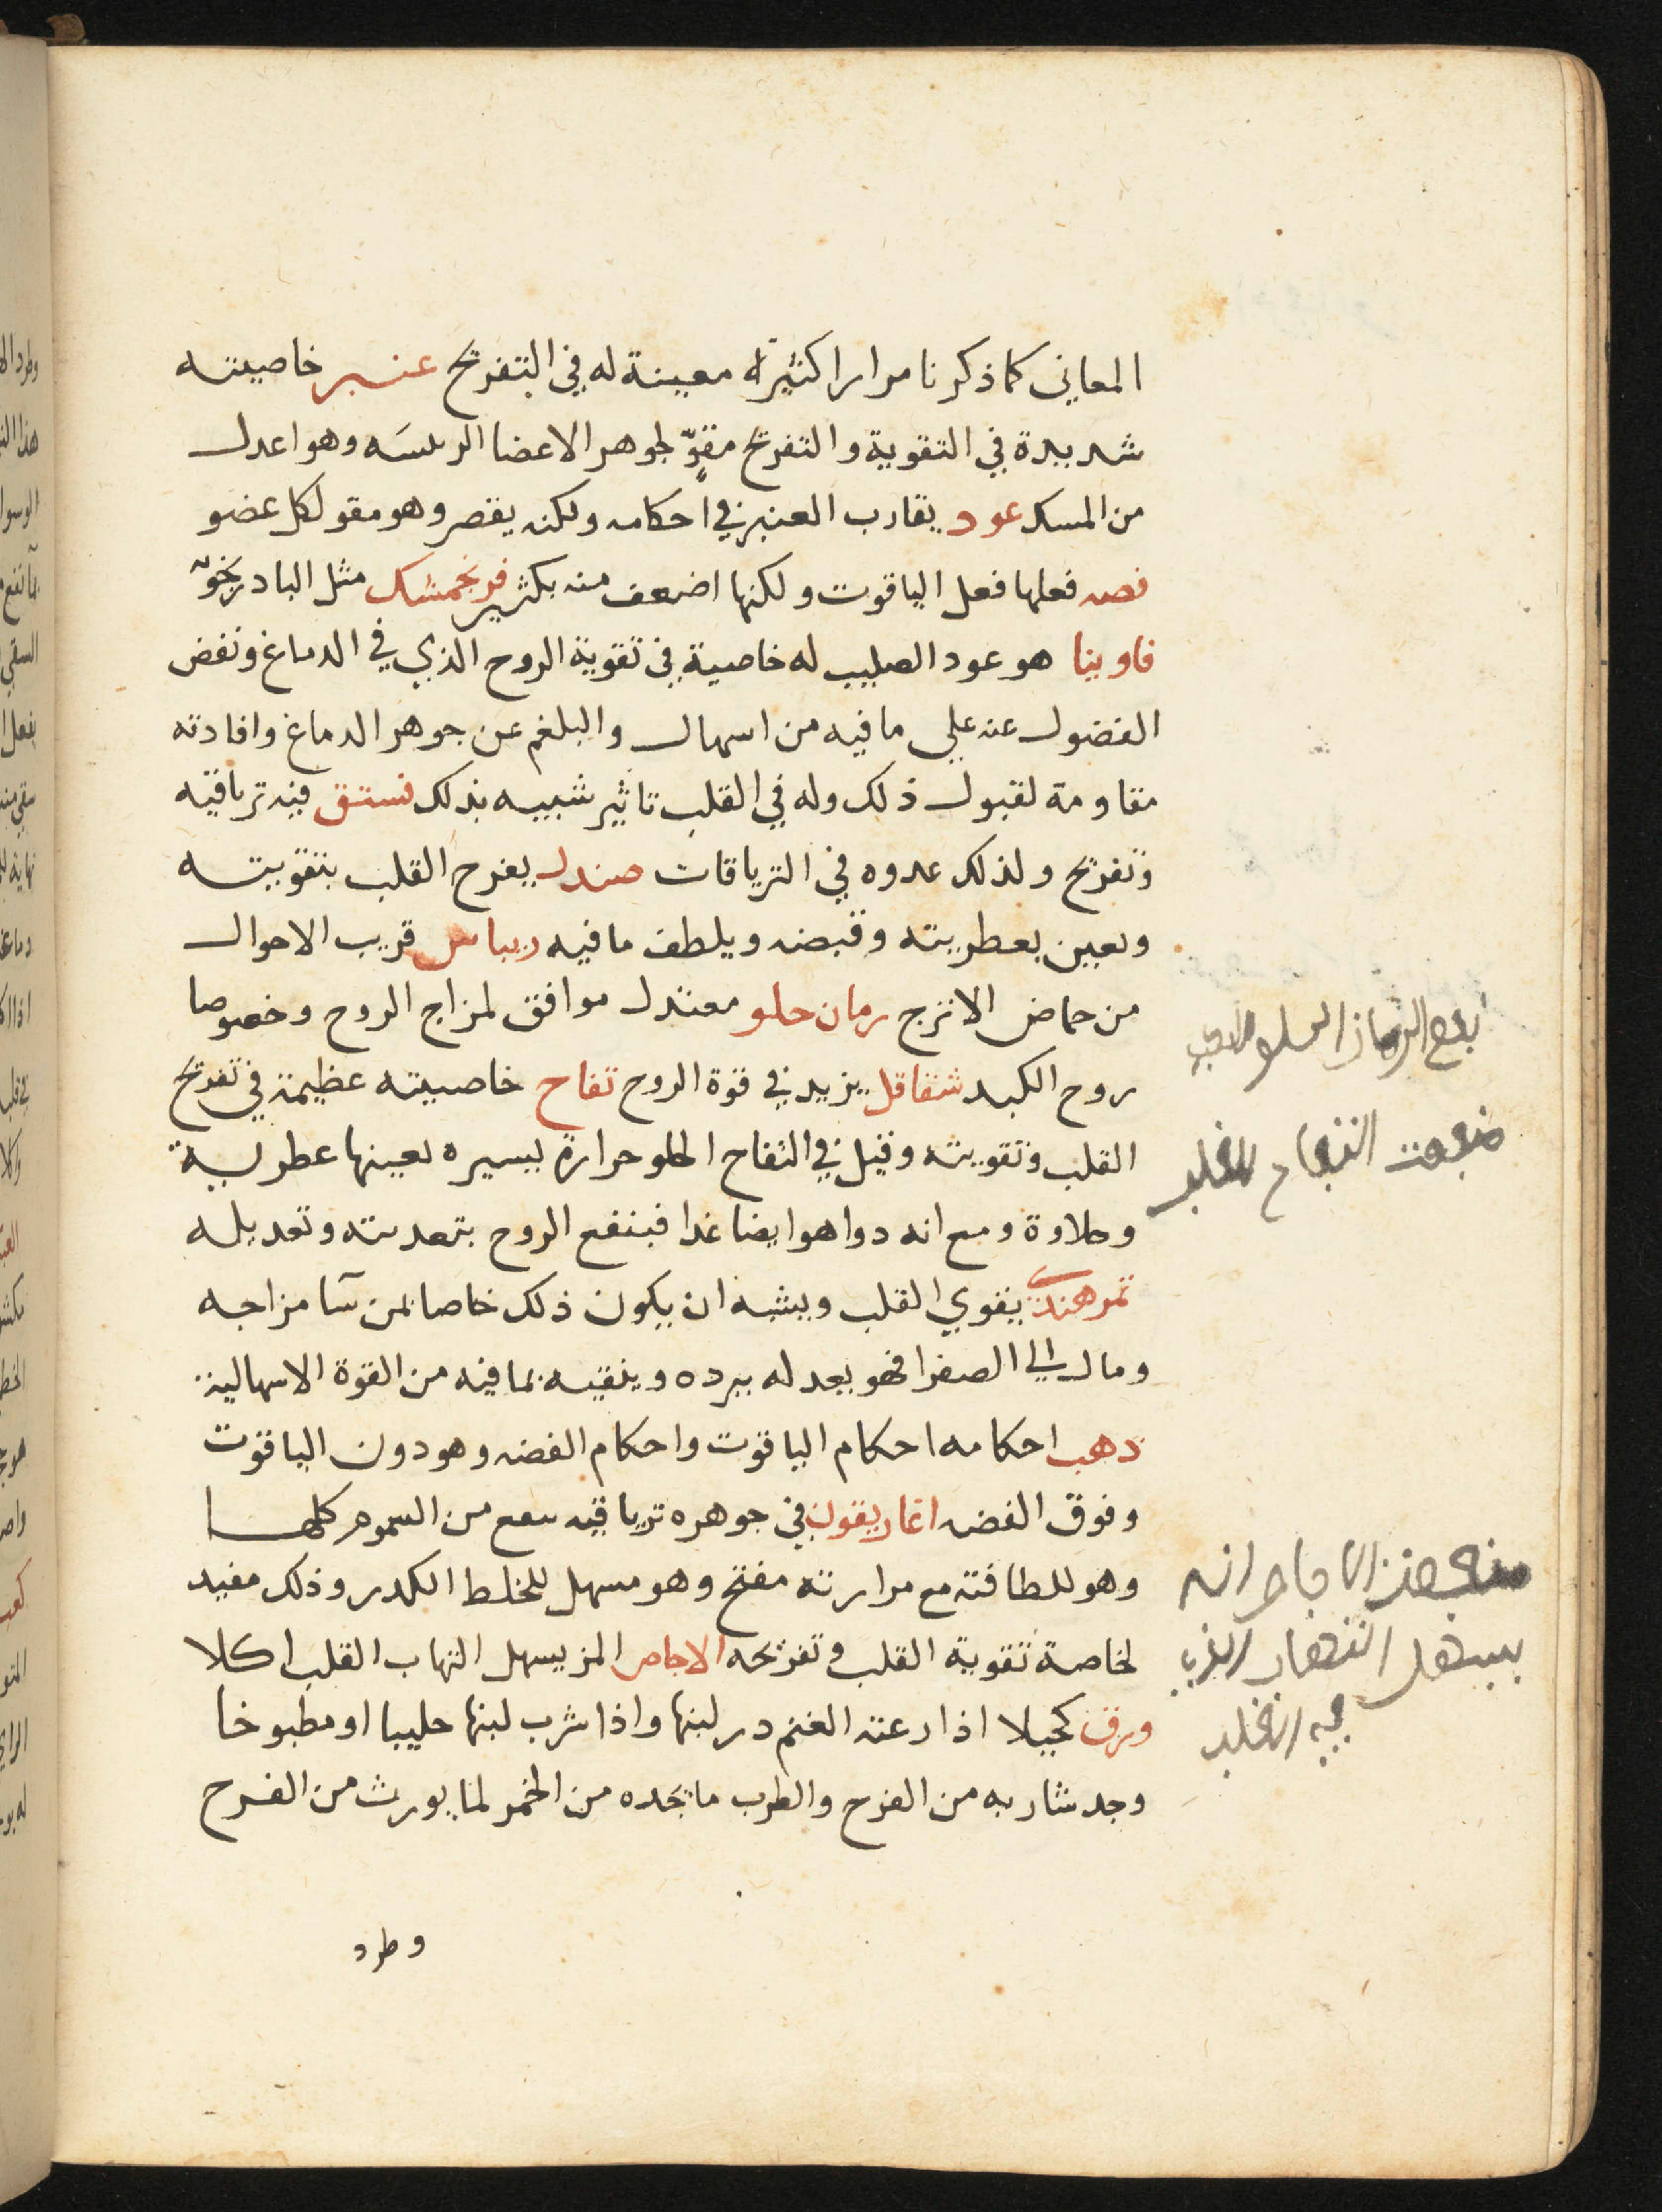 المعاني كما ذكرنا مرارا كثيرة معينة له في التفريح عنبر خاصيته
شديدة في التقوية والتفريح مقوّ لجوهر الاعضا الرئيسَه وهو اعدل
من المسك عود يقارب العنبر في احكامه ولكنه يقصر وهو مقو لكل عضو
فضه فعلها فعل الياقوت ولكنها اضعف منه بكثير فرنجمشك مثل البادرنجويه
فاوينا هو عود الصليب له خاصية في تقوية الروح الذي في الدماغ ونفض
الفضول عنه علي ما فيه من اسهال والبلغم عن جوهر الدماغ وافادته
مقاومة لقبول ذلك وله في القلب تاثير شبيه بذلك فستق فيه ترياقيه
وتفريح ولذلك عدوه في الترياقات صندل يفرح القلب بتقويته
وتعين بعطريته وقبضه ويلطف ما فيه ريباس قريب الاحوال
من حماض الاترج رمان حلو معتدل موافق لمزاج الروح وخصوصا
روح الكبد شقاقل يزيد في قوة الروح تفاح خاصيته عظيمة في تفريح
القلب وتقويته وقيل في التفاح الحلو حرارة يسيره تعينها عطرية
وحلاوة ومع انه دوا هو ايضا غدا فينفع الروح بتغديته وتعديله
تمر هندي يقوي القلب ويشبه ان يكون ذلك خاصا بمن سآ مزاجه
ومال الي الصفرا فهو يعدله ببرده وينقيه بما فيه من القوة الاسهالية
ذهب احكامه احكام الياقوت واحكام الفضه وهو دون الياقوت
وفوق الفضه اغاريقون في جوهره ترياقيه تنفع من السموم كلها
وهو للطافته مع مرارته مفتح وهو مسهل للخلط الكدر وذلك مفيد
لخاصة تقوية القلب وتفريحه الاجاص المز يسهل التهاب القلب اكلا
ورق كحيلا اذا رعته الغنم در لبنها واذا شرب لبنها حليبا او مطبوخا
وجد شاربه من الفرح والطرب ما يجده من الخمر لما يورث من الفرح
وطرد
نفع الرمان الحلو
منفعت التفاح للقلب
منفعت الاجاص انه
يسهل التهاب الذي
في القلب